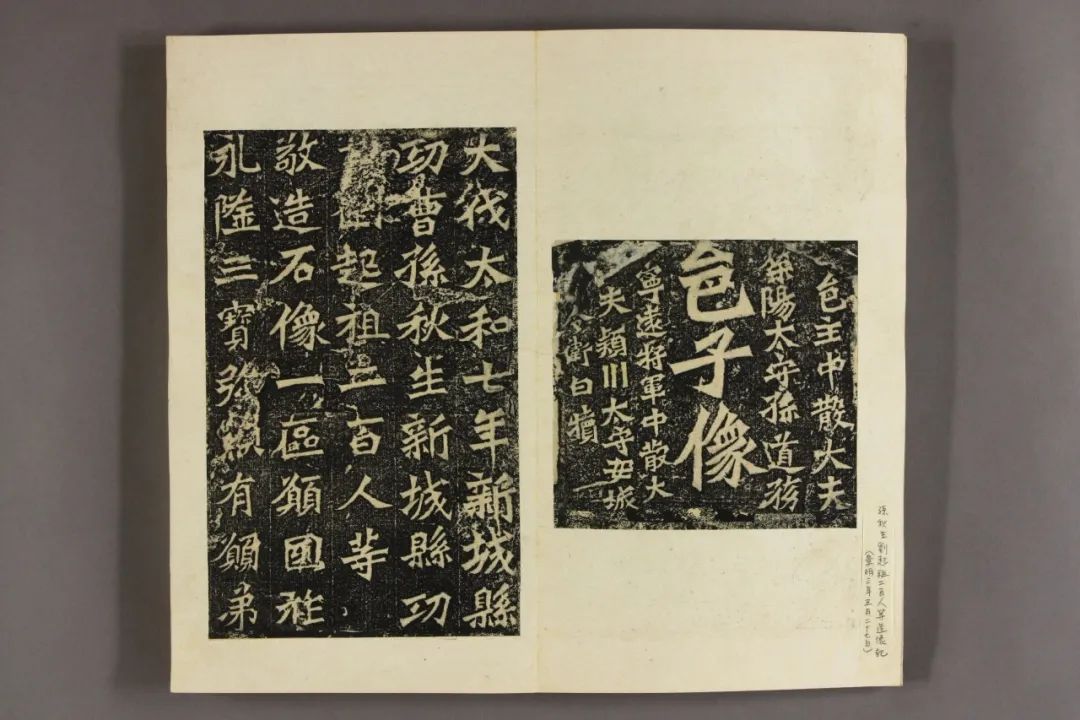 邑主中散大夫
滎陽太守孫道務
邑子像
寧遠將軍中散大
夫潁川太守安城
令衛白犢
孫秋生劉起祖二百人等造像記
（景明三年五月二十七日）
大伐太和七年新城縣
功曹孫秋生新城縣功
曹劉起祖二百人等
敬造石像一區願國祚
永隆三寶彌顯有願弟